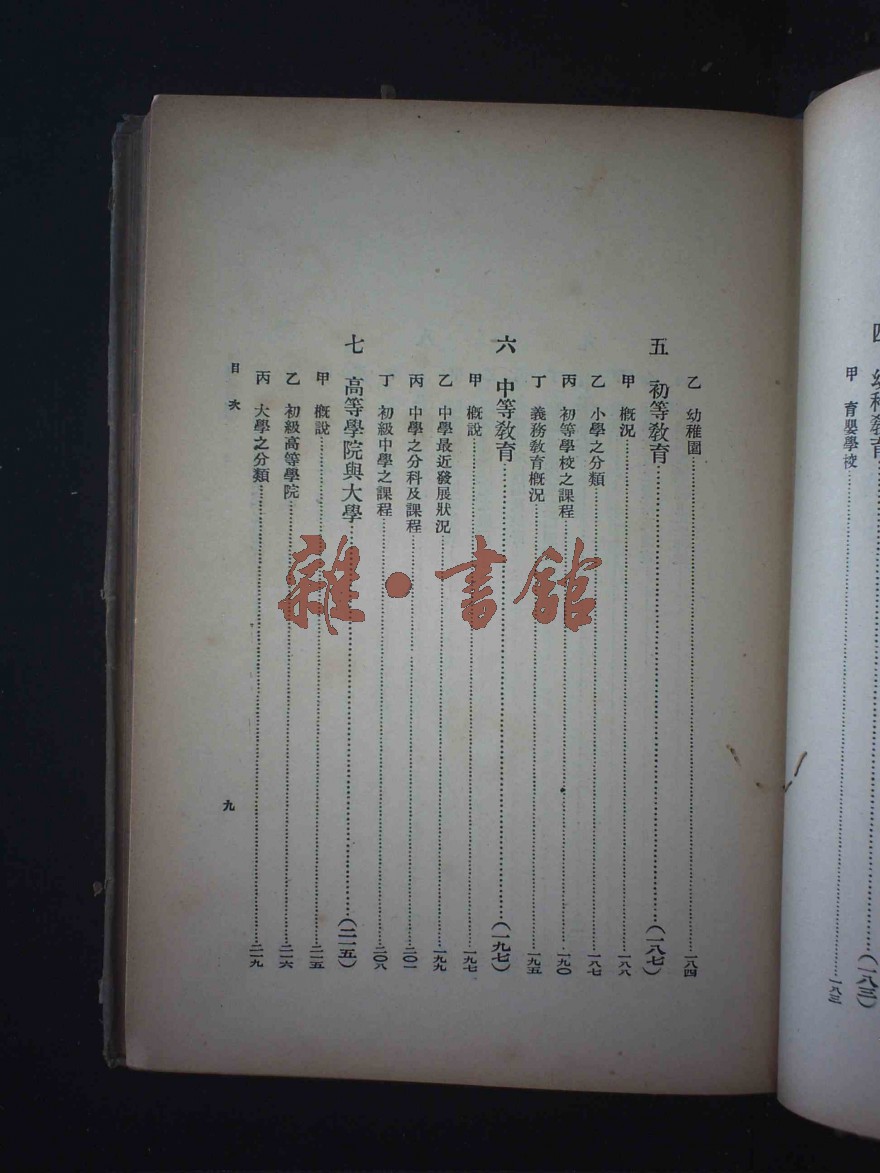 四 幼稚教育……(一八三)
甲 育嬰學校……一八三
乙 幼稚園……一八四
五 初等教育……(一八七)
甲 概況……一八八
乙 小學之分類……一八七
丙 初等學校之課程……一九〇
丁 義務教育概況……一九五
六 中等教育……(一九七)
甲 概說……一九七
乙 中學最近發展狀況……一九九
丙 中學之分科及課程……二〇一
丁 初級中學之課程……二〇八
七 高等學院與大學……(二一五)
甲 概說……二一五
乙 初級高等學院……二一六
丙 大學之分類……二一九
目次
九
雜·書館